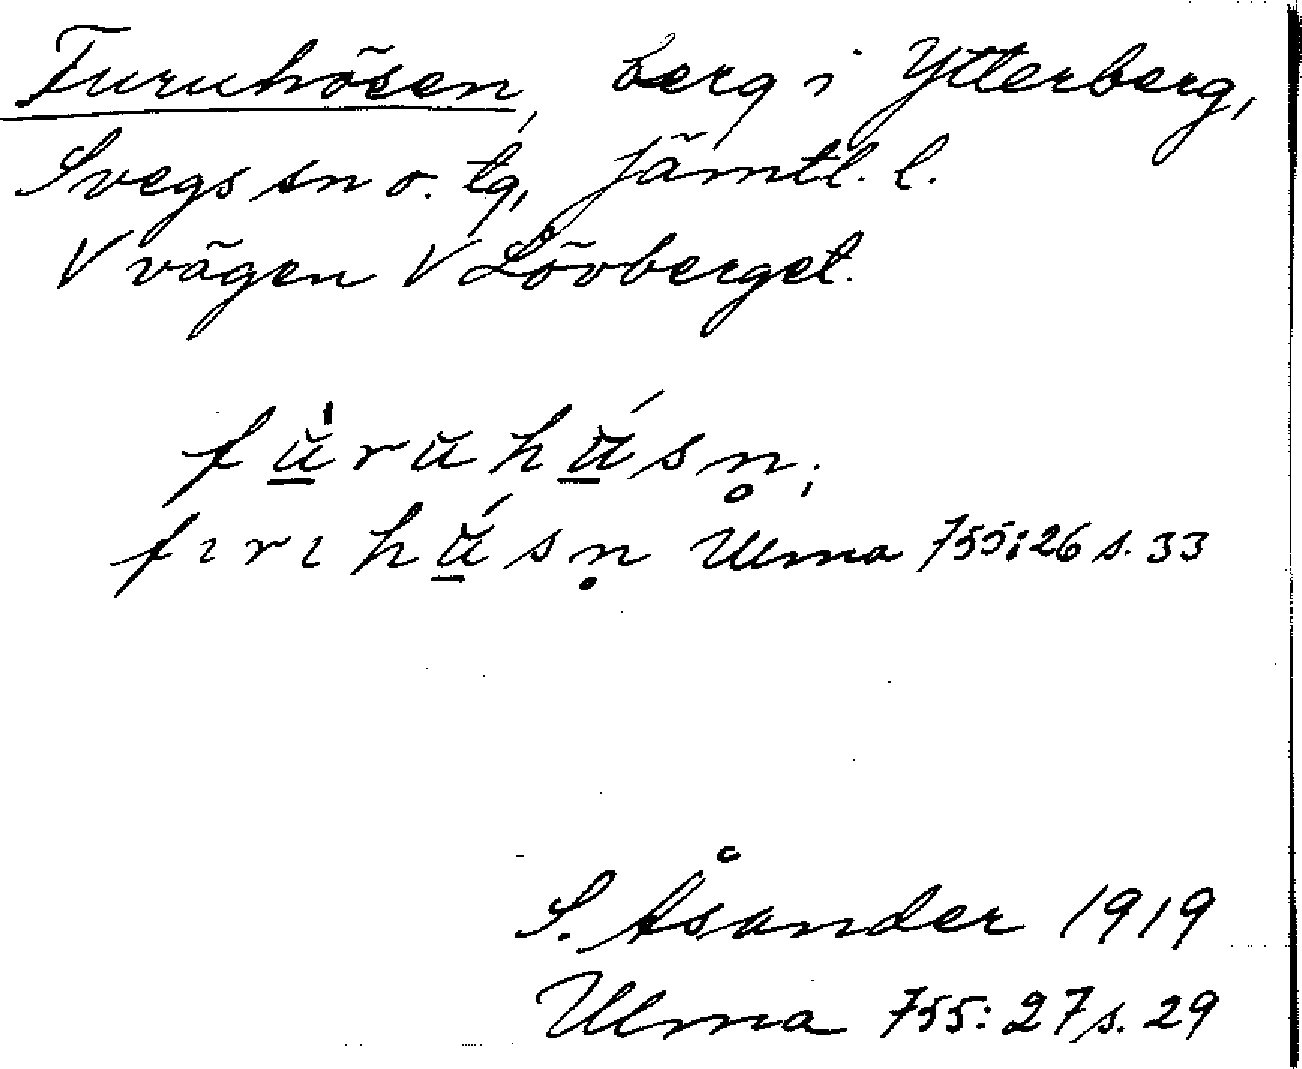 Furuhösen, berg i Ytterberg,
Svegs sn o. tg, Jämtl. l.
V vägen V Lövberget.
fŭ̱̀rŭhŭ̱́sn̥;
fırıhŭ̱́sn̥ Ulma 755:26 s. 33
S. Åsander 1919
Ulma 755:27 s. 29